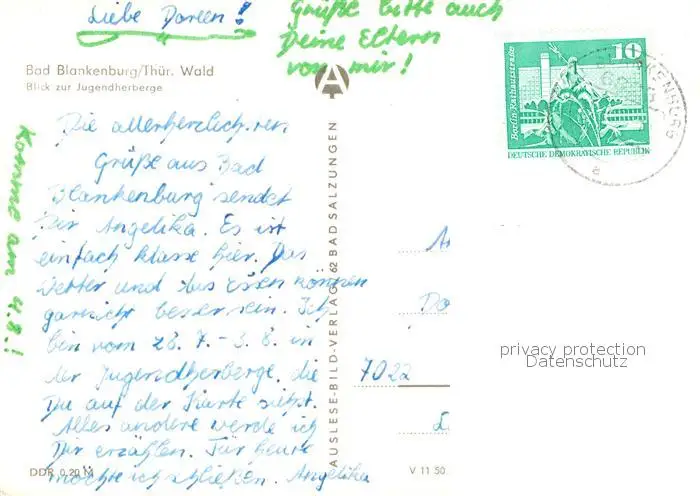 Liebe Doreen!
Grüße bitte auch
Deine Eltern
von mir!
Bad Blankenburg/Thür. Wald
Blick zur Jugendherberge
Komme am 4.8.!
Die allerherzlichsten
Grüße aus Bad
Blankenburg sendet
Dir Angelika. Es ist
einfach klasse hier. Das
Wetter und das Essen können
garnicht besser sein. Ich
bin vom 28.7. - 3.8. in
der Jugendherberge, die
Du auf der Karte siehst.
Alles andere werde ich
Dir erzählen. Für heute
möchte ich schließen. Angelika
DDR 0,20 M
AUSLESE-BILD-VERLAG 62 BAD SALZUNGEN
V 11 50
Berlin-Rathausstraße
10
DEUTSCHE DEMOKRATISCHE REPUBLIK
Do
7022
privacy protection
Datenschutz